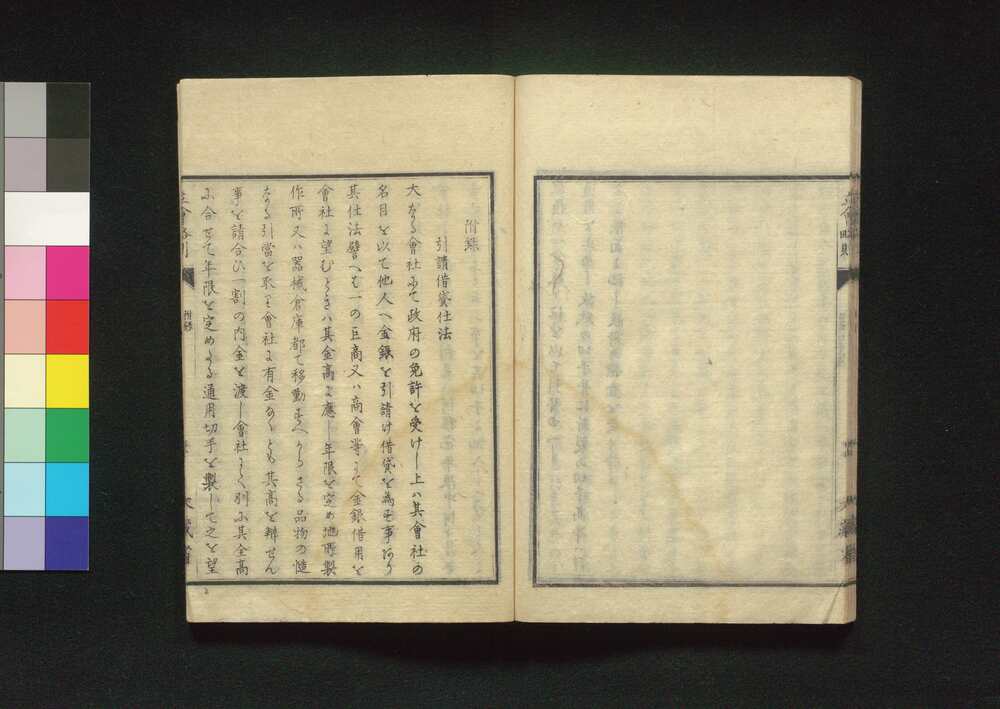 立會略則
附録
引請借貸仕法
大なる會社にて政府の免許を受けし上ハ其會社の
名目を以て他人へ金銀を引請け借貸を為す事あり
其仕法譬へむ一の巨商又ハ商會等にて金銀借用を
會社に望むときハ其金高に應し年限を定め地所製
作所又ハ器械倉庫都て移動すへからさる品物の慥
なる引當を取り會社に有金なくとも其高を辨せん
事を請合ひ一割の内金を渡し會社にて別に其全高
に合せて年限を定めたる通用切手を製して之を望
立會略則
附録
大蔵省